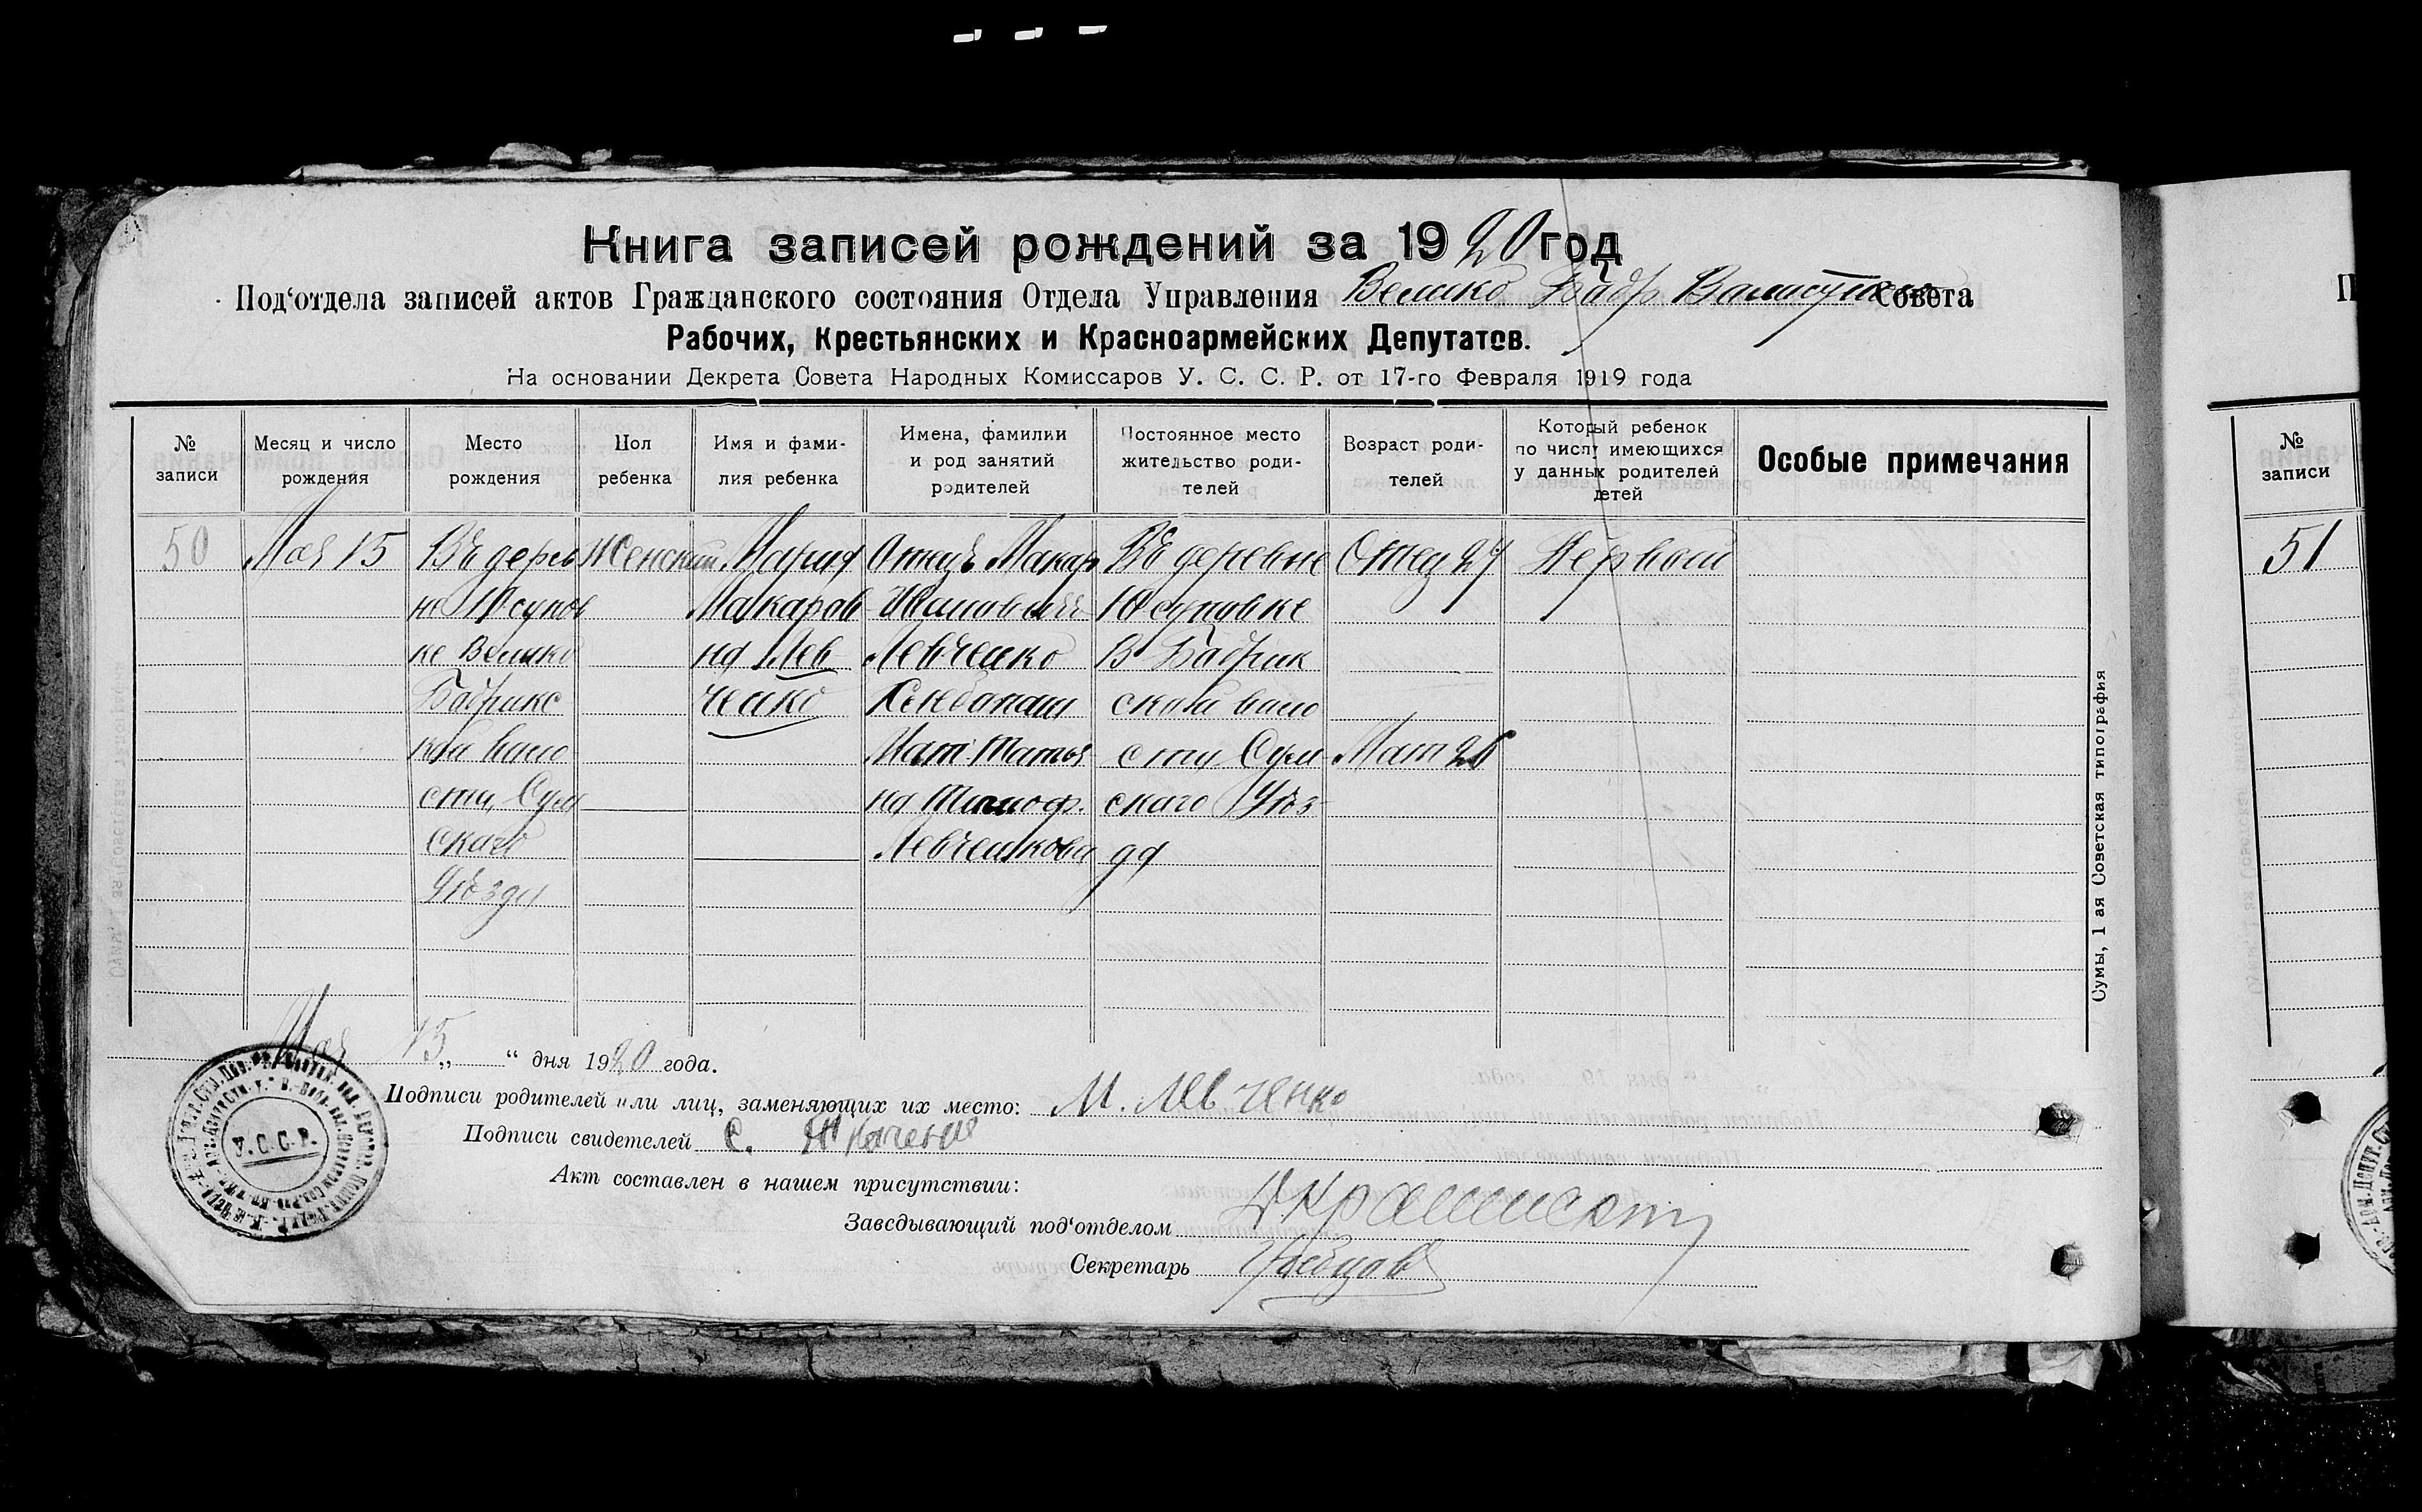 Книга записей рождений за 1920 год
Под‘отдела записей актов Гражданского состояния Отдела Управления Велико Бобр Совета
Рабочих, Крестьянских и Красноармейских Депутатов.
На основании Декрета Совета Народных Комиссаров У. С. С. Р. от 17-го Февраля 1919 года
№ записи
Месяц и число рождения
Место рождения
Пол ребенка
Имя и фами-
лия ребенка
Имена, фамилии
и род занятий
родителей
Постоянное место
жительство роди-
телей
Возраст роди-
телей
Который ребенок
по числу имеющихся
у данных родителей
детей
Особые примечания
50
Мая 15
Въ дерев
не Юсупов
ке Велико
Бобрикс
кой воло
сти, Сум
скаго
Уѣзда
Женский
Мария
Макаров
на Лев
ченко
Отецъ Макар
Левченко
Мат. Татья
на
Левченкова
Въ деревне
Юсуповке
В Бобрик
ской воло
сти Сум
скаго Уѣз
да
Отец 27
Мат 26
Первой
Мая 15 „ “ дня 1920 года.
Подписи родителей или лиц, заменяющих их место: М. Левченко
Подписи свидетелей С. Ткаченко
Акт составлен в нашем присутствии:
Заведывающий под‘отделом
Секретарь
У.С.С.Р.
Сумы, 1 ая Советская типография
№
записи
51